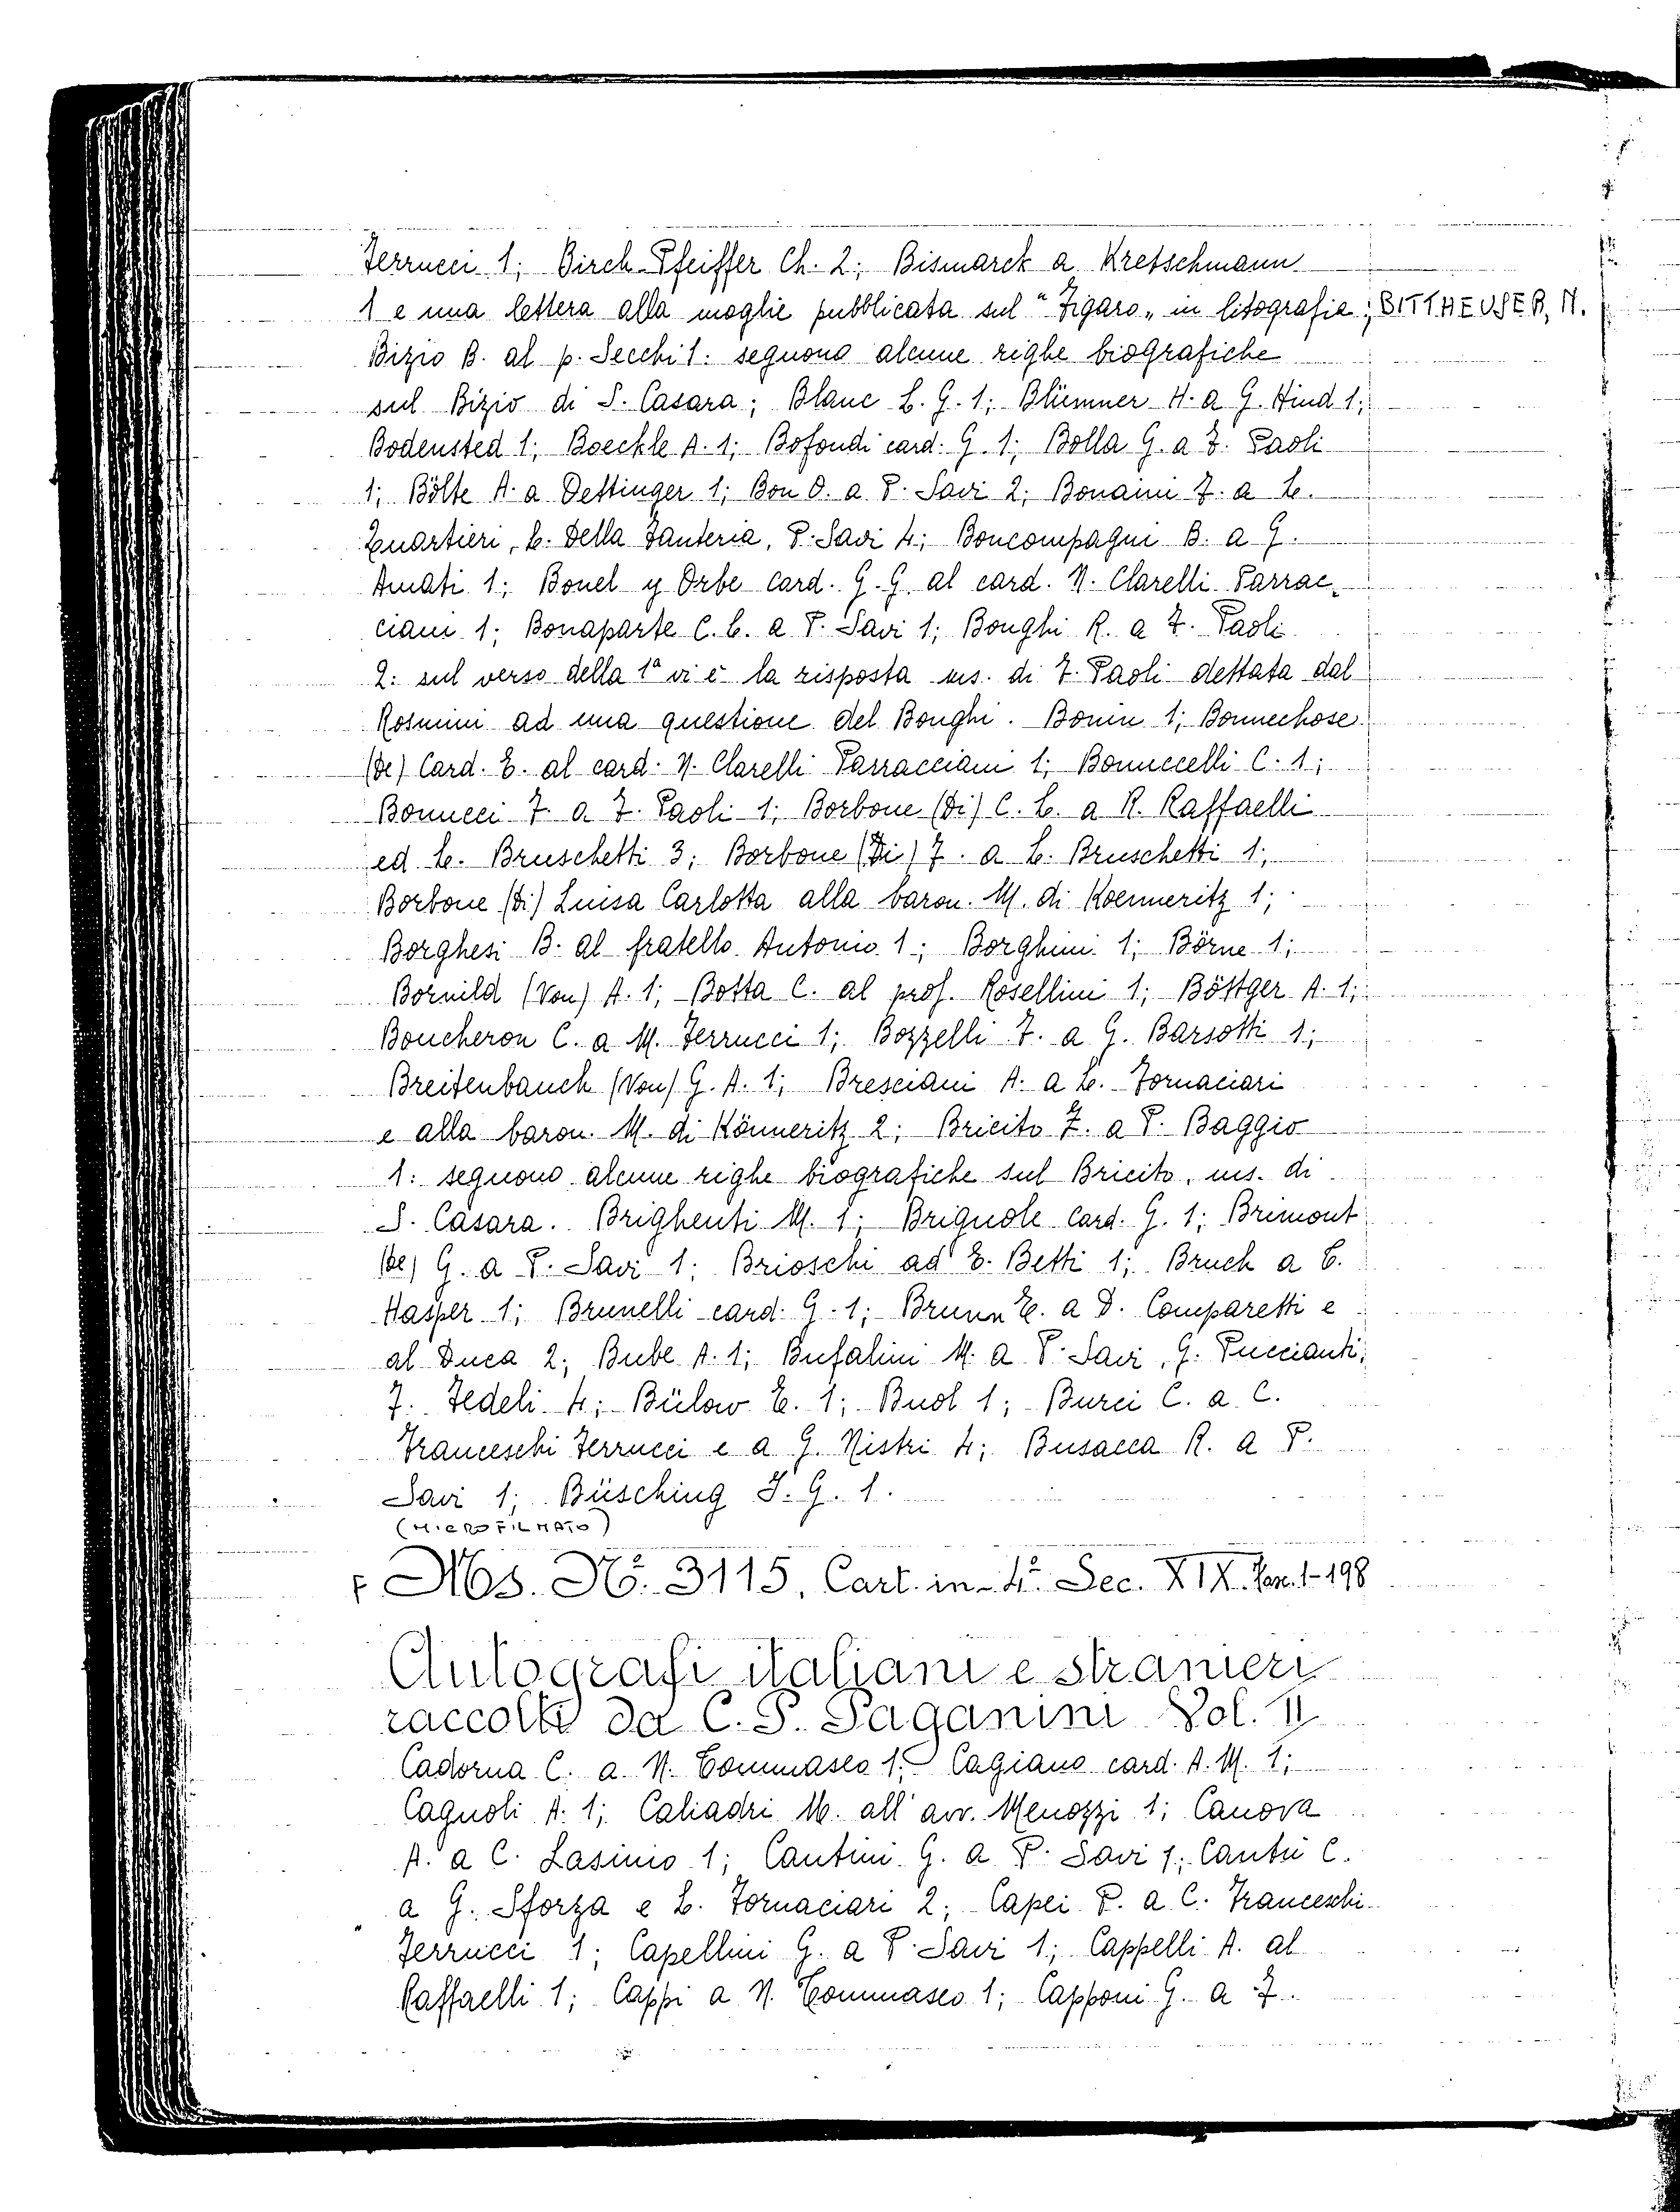 Ferrucci 1; Birch-Pfeiffer Ch. 2; Bismarck a Kretschmann
1 e una lettera alla moglie pubblicata sul "Figaro„ in litografia; BITTHEUSER, N.
Bizio B. al p. Secchi 1: seguono alcune righe biografiche
sul Bizio di S. Casara; Blanc L. G. 1; Blümner H. a G. Hind 1;
Bodensted 1; Boeckle A. 1; Bofondi card. G. 1; Bolla G. a F. Paoli
1; Bölte A. a Oettinger 1; Bon O. a P. Savi 2; Bonaini F. a L.
Quartieri, L. Della Fanteria, P. Savi 4; Boncompagni B. a G.
Amati 1; Bonel y Orbe card. G. G. al card. N. Clarelli Parrac-
ciani 1; Bonaparte C. L. a P. Savi 1; Bonghi R. a F. Paoli
2: sul verso della 1ª vi è la risposta ms. di F. Paoli dettata dal
Rosmini ad una questione del Bonghi. Bonin 1; Bonnechose
(De) Card. E. al card. N. Clarelli Parracciani 1; Bonuccelli C. 1;
Bonucci F. a F. Paoli 1; Borbone (Di) C. L. a R. Raffaelli
ed L. Bruschetti 3; Borbone (Di) F. a L. Bruschetti 1;
Borbone (Di) Luisa Carlotta alla baron. M. di Koenneritz 1;
Borghesi B. al fratello Antonio 1; Borghini 1; Börne 1;
Bornild (Von) A. 1; Botta C. al prof. Rosellini 1; Böttger A. 1;
Boucheron C. a M. Ferrucci 1; Bozzelli F. a G. Barsotti 1;
Breitenbauch (Von) G. A. 1; Bresciani A. a L. Fornaciari
e alla baron. M. di Könneritz 2; Bricito Z. a P. Baggio
1: seguono alcune righe biografiche sul Bricito, ms. di
S. Casara. Brighenti M. 1; Brignole Card. G. 1; Brimont
(De) G. a P. Savi 1; Brioschi ad E. Betti 1; Bruch a C.
Hasper 1; Brunelli card. G. 1; Brunn E. a D. Comparetti e
al Duca 2; Bube A. 1; Bufalini M. a P. Savi, G. Puccianti,
F. Fedeli 4; Bülow E. 1; Buol 1; Burci C. a C.
Franceschi Ferrucci e a G. Nistri 4; Busacca R. a P.
Savi 1; Büsching J. G. 1.
(MICROFILMATO)
Ms. Nº. 3115. Cart. in-4º. Sec. XIX. 1-198
Autografi italiani e stranieri
raccolti da C. P. Paganini Vol. II
Cadorna C. a N. Tommaseo 1; Cagiano card. A. M. 1;
Cagnoli A. 1; Caliadri M. all' avv. Menozzi 1; Canova
A. a C. Lasinio 1; Cantini G. a P. Savi 1; Cantù C.
a G. Sforza e L. Fornaciari 2; Capei P. a C. Franceschi-
Ferrucci 1; Capellini G. a P. Savi 1; Cappelli A. al
Raffaelli 1; Cappi a N. Tommaseo 1; Capponi G. a F.